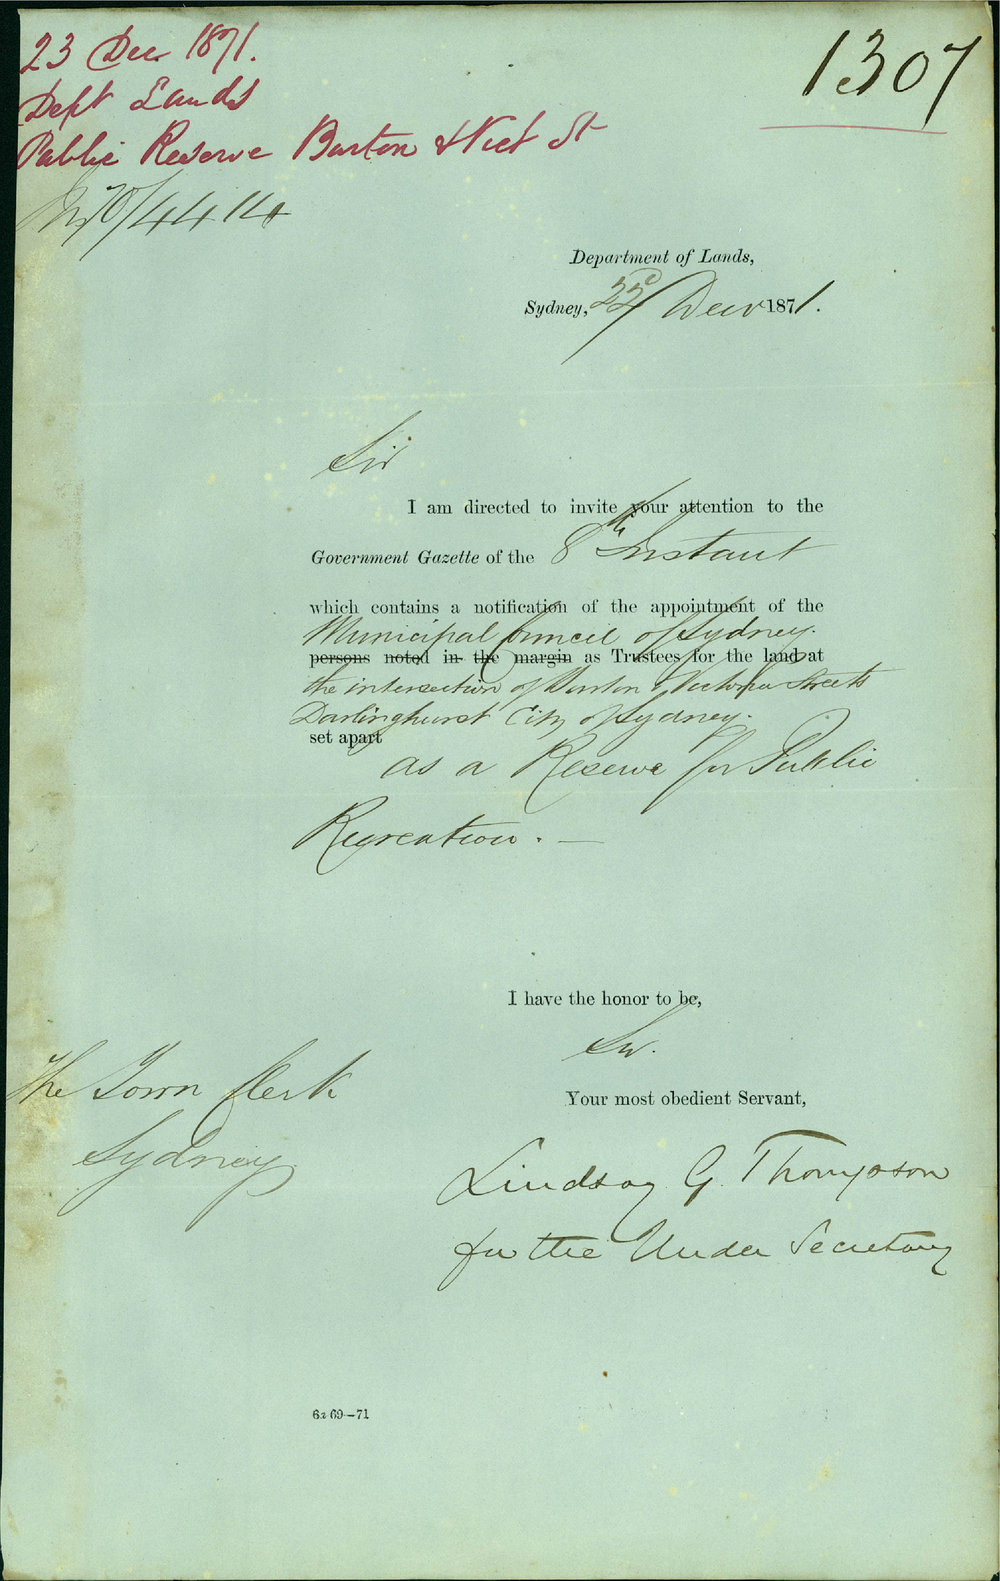 23 Dec 1871.
1307
Dept Lands
Public Reserve Burton & Vict St
70/4414
Department of Lands,
Sydney, 22d Decr 1871.
Sir
I am directed to invite your attention to the
Government Gazette of the 8th Instant
which contains a notification of the appointment of the
Municipal Council of Sydney.
persons noted in the margin as Trustees for the land at
the intersection of Burton & Victoria Streets
Darlinghurst City of Sydney.
set apart
as a Reserve for Public
Recreation. —
I have the honor to be,
Sir.
The Town Clerk
Your most obedient Servant,
Sydney
Lindsay G. Thompson
for the Under Secretary
69—71